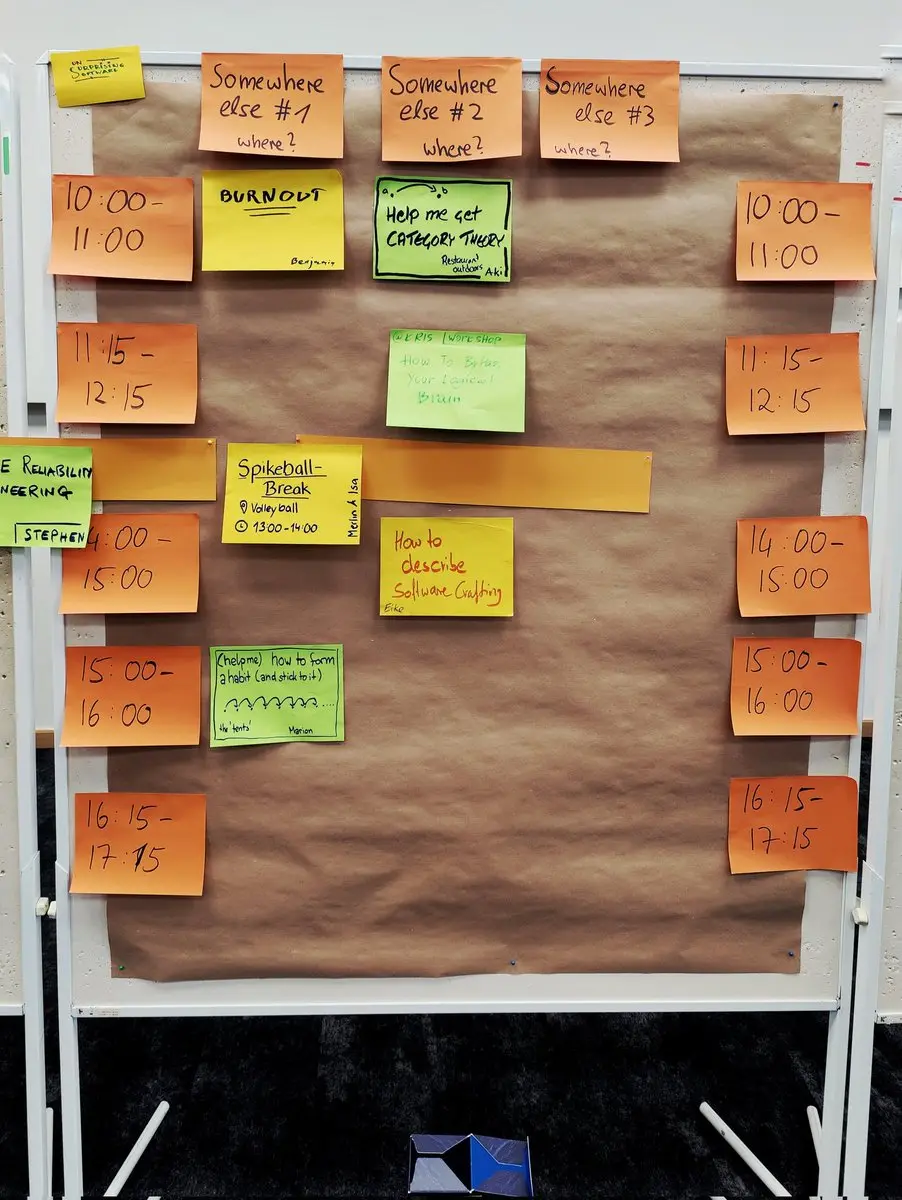 ON
SURPRISING
SOFTWARE
Somewhere
else #1
where?
Somewhere
else #2
where?
Somewhere
else #3
where?
10:00-
11:00
BURNOUT
Benjamin
a b
Help me get
CATEGORY THEORY
Restaurant
outdoors Aki
10:00-
11:00
11:15-
12:15
KRIS | WORKSHOP
How To
Your
Brain
11:15-
12:15
E RELIABILITY
NEERING
STEPHEN
Spikeball-
Break
Volleyball
13:00-14:00
Merlin & Isa
4:00-
15:00
How to
describe
Software Crafting
Eike
14:00-
15:00
15:00-
16:00
(help me) how to form
a habit (and stick to it)
the 'tents' Marion
15:00-
16:00
16:15-
17:15
16:15-
17:15